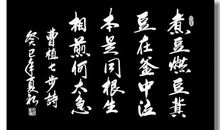 煮豆燃豆萁
豆在釜中泣
本是同根生
相煎何太急
曹植七步詩
癸巳年夏